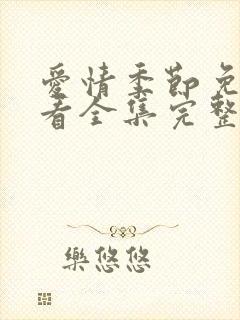 愛情季節免
看全集完整
樂悠悠